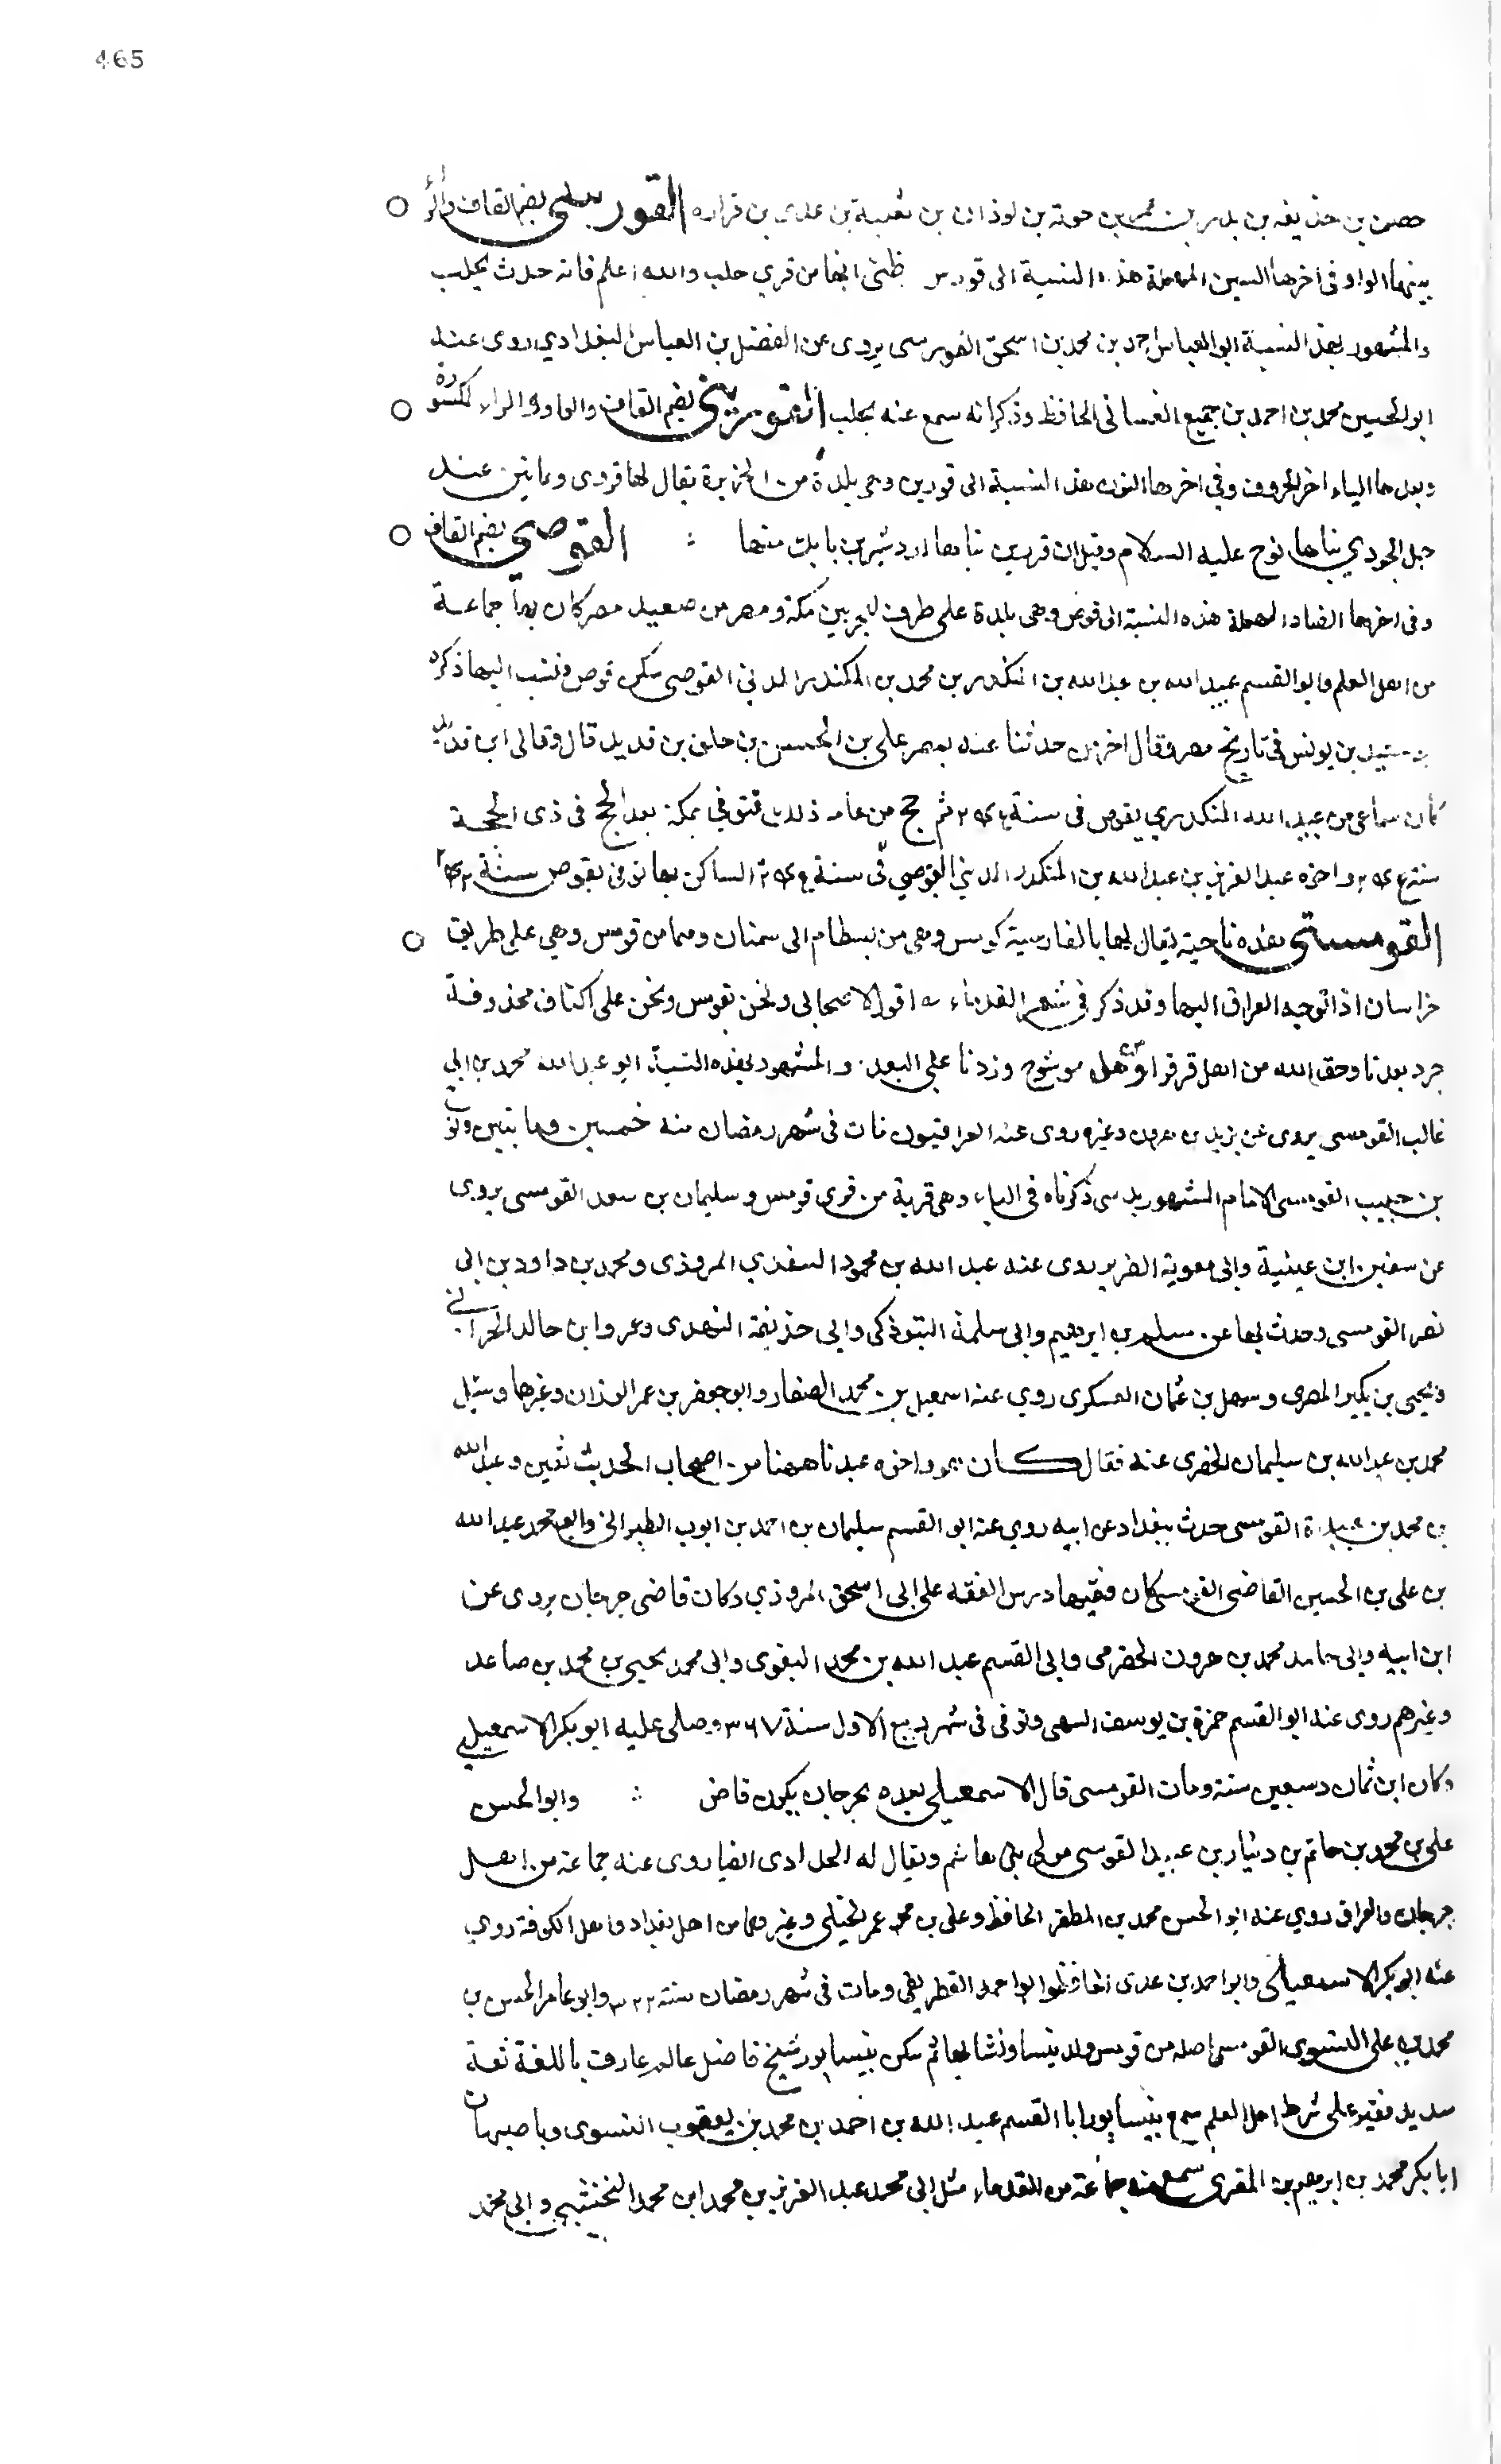 465
حصن بن حذيفه بن بدر بن عمرو بن جوية بن لوذان بن ثعلبة بن عدى بن فزاره القورسي بضم القاف والراء
بينهما الواو فى اخرها السين المهملة هذه النسبة الى قورس ظنى انها من قرى حلب والله اعلم فانه حدث بحلب
والمشهور بهذ النسبة ابو العباس احمد بن محمد بن اسحق القورسى يروى عن الفضل بن العباس البغدادي روى عنه
ابو الحسين محمد بن احمد بن جميع الغسانى الحافظ وذكر انه سمع عنه بحلب القوريني بضم القاف والواو والراء المكسورة
وبعدها الياء اخر الحروف وفي اخرها النون هذ النسبة الى قورين وهى بلدة من الجزيرة يقال لها قردى وثمانين عند
جبل الجودي بناها نوح عليه السلام وقيل ان قورين بناها اردشير بن بابك منها القوصي بضم القاف
وفى اخرها الصاد المهملة هذه النسبة الى قوص وهى بلدة على طرف البحر بين مكة ومصر من صعيد مصر كان بها جماعة
من اهل العلم وابو القسم عبيد الله بن عبد الله بن المنكدر بن محمد بن المكندر المدني القوصى سكن قوص فنسب اليها ذكره
بن يونس فى تاريخ مصر وقال اخر من حدثنا عنه بمصر على بن الحسن بن خلف بن قديد قال وقال لى ابن قديد
كان سماعى من عبيد الله المنكدري بقوص فى سنة ثم حج من عامه ذلك فتوفي بمكة بعد الحج فى ذى الحجة
سنة واخوه عبد العزيز بن عبد الله بن المنكدر المديني القوصي فى سنة الساكن بها توفى بقوص سنة
القومسي هذه ناحية يقال لها بالفارسية كومس وهى من بسطام الى سمنان وهما من قومس وهى على طريق
خراسان اذا توجه العراق اليها وقد ذكر فى شعر القدماء اقول لاصحابى ونحن بقومس ونحن على اكتاف محذوفة
جرد بعدنا وحق الله من اهل قرقرا وهل موشوج وزدنا على البعد والمشهور بهذه النسبة ابو عبد الله محمد بن ابى
غالب القومسى يروى عن يزيد بن هرون وغيره روى عنه العراقيون مات فى شهر رمضان سنه خمسين ومايتين ونوح
بن حبيب القومسى الامام المشهور ذكرناه فى الباء وهى قرية من قرى قومس وسليمان بن سعد القومسى يروى
عن سفين ابن عيينة وابى معوية الضرير روى عنه عبد الله بن محمود السغدي المروذى ومحمد بن داود بن ابى
نصر القومسى وحدث بها عن مسلم بن ابرهيم وابى سلمة التبوذكى وابى حذيفة النهدى وعمرو ابن خالد الحرانى
ويحيى بن بكير المصرى وسهل بن عثمان العسكرى روي عنه اسمعيل بن محمد الصفار وابو جعفر بن عمر الرزان وغيرها وسئل
محمد بن عبد الله بن سليمان الحضرى عنه فقال كان هو واخوه عبدنا ههنا من اصحاب الحديث ثقتين وعبد الله
بن محمد بن القومسى حدث ببغداد عن ابيه روي عنه ابو القسم سليمان بن احمد بن ايوب الطبرانى وابو محمد عبد الله
بن على بن الحسين القاضى القومسى كان فقيها درس الفقه على ابى اسحق المروذي وكان قاضى جرجان يروى عن
ابن ابيه وابى حامد محمد بن هرون الحضرمى وابى القسم عبد الله بن محمد البغوى وابى محمد يحيى بن محمد بن صاعد
وغيرهم روى عنه ابو القسم حمزة بن يوسف السهمى وتوفى فى شهر ربيع الاول سنة ٣٦٧ وصلى عليه ابو بكر الاسمعيلى
وكان ابن ثمان وسبعين سنة ومات القومسى قال الاسمعيلى بعده بجرجان يكون قاض وابو الحسن
على بن محمد بن حاتم بن دينار بن عبيد القومسى مولى بنى هاشم ويقال له الحدادى ايضا روى عنه جماعة من اهل
جرجان والعراق روي عنه ابو الحسن محمد بن المظفر الحافظ وعلى بن عمر الختلى وغيرهما من اهل بغداد واهل الكوفة روي
عنه ابو بكر الاسمعيلى وابو احمد بن عدى الحافظ وابو احمد الغطريفى ومات فى شهر رمضان سنة ٣٢٢ وابو عامر الحسن بن
محمد بن على النسوى القومسى اصله من قومس ولد بنسا ونشا بها ثم سكن نيسابور شيخ فاضل عالم عارف باللغة ثقة
سديد فقير على شرط اهل العلم سمع بنيسابور ابا القسم عبد الله بن احمد بن محمد بن يعقوب النسوى وباصبهان
ابا بكر محمد بن ابرهيم بن المقرى سمع منه جماعة من القدماء مثل ابى محمد عبد العزيز بن محمد ابن محمد النخشبى وابى محمد